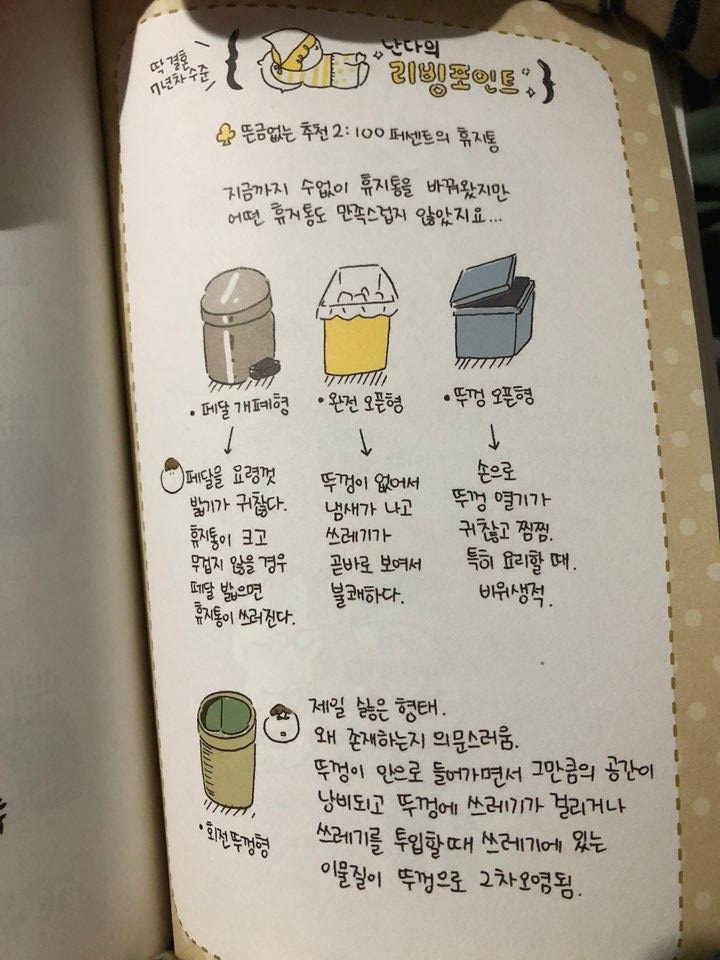 딱 결혼
7년차 수준
난다의
리빙포인트
뜬금없는 추천2: 100 퍼센트의 휴지통
지금까지 수없이 휴지통을 바꿔왔지만
어떤 휴지통도 만족스럽지 않았지요...
• 페달 개폐형
• 완전 오픈형
• 뚜껑 오픈형
페달을 요령껏
밟기가 귀찮다.
휴지통이 크고
무겁지 않을 경우
페달 밟으면
휴지통이 쓰러진다.
뚜껑이 없어서
냄새가 나고
쓰레기가
곧바로 보여서
불쾌하다.
손으로
뚜껑 열기가
귀찮고 찜찜.
특히 요리할 때.
비위생적.
• 회전 뚜껑형
제일 싫은 형태.
왜 존재하는지 의문스러움.
뚜껑이 안으로 들어가면서 그만큼의 공간이
낭비되고 뚜껑에 쓰레기가 걸리거나
쓰레기를 투입할 때 쓰레기에 있는
이물질이 뚜껑으로 2차오염됨.